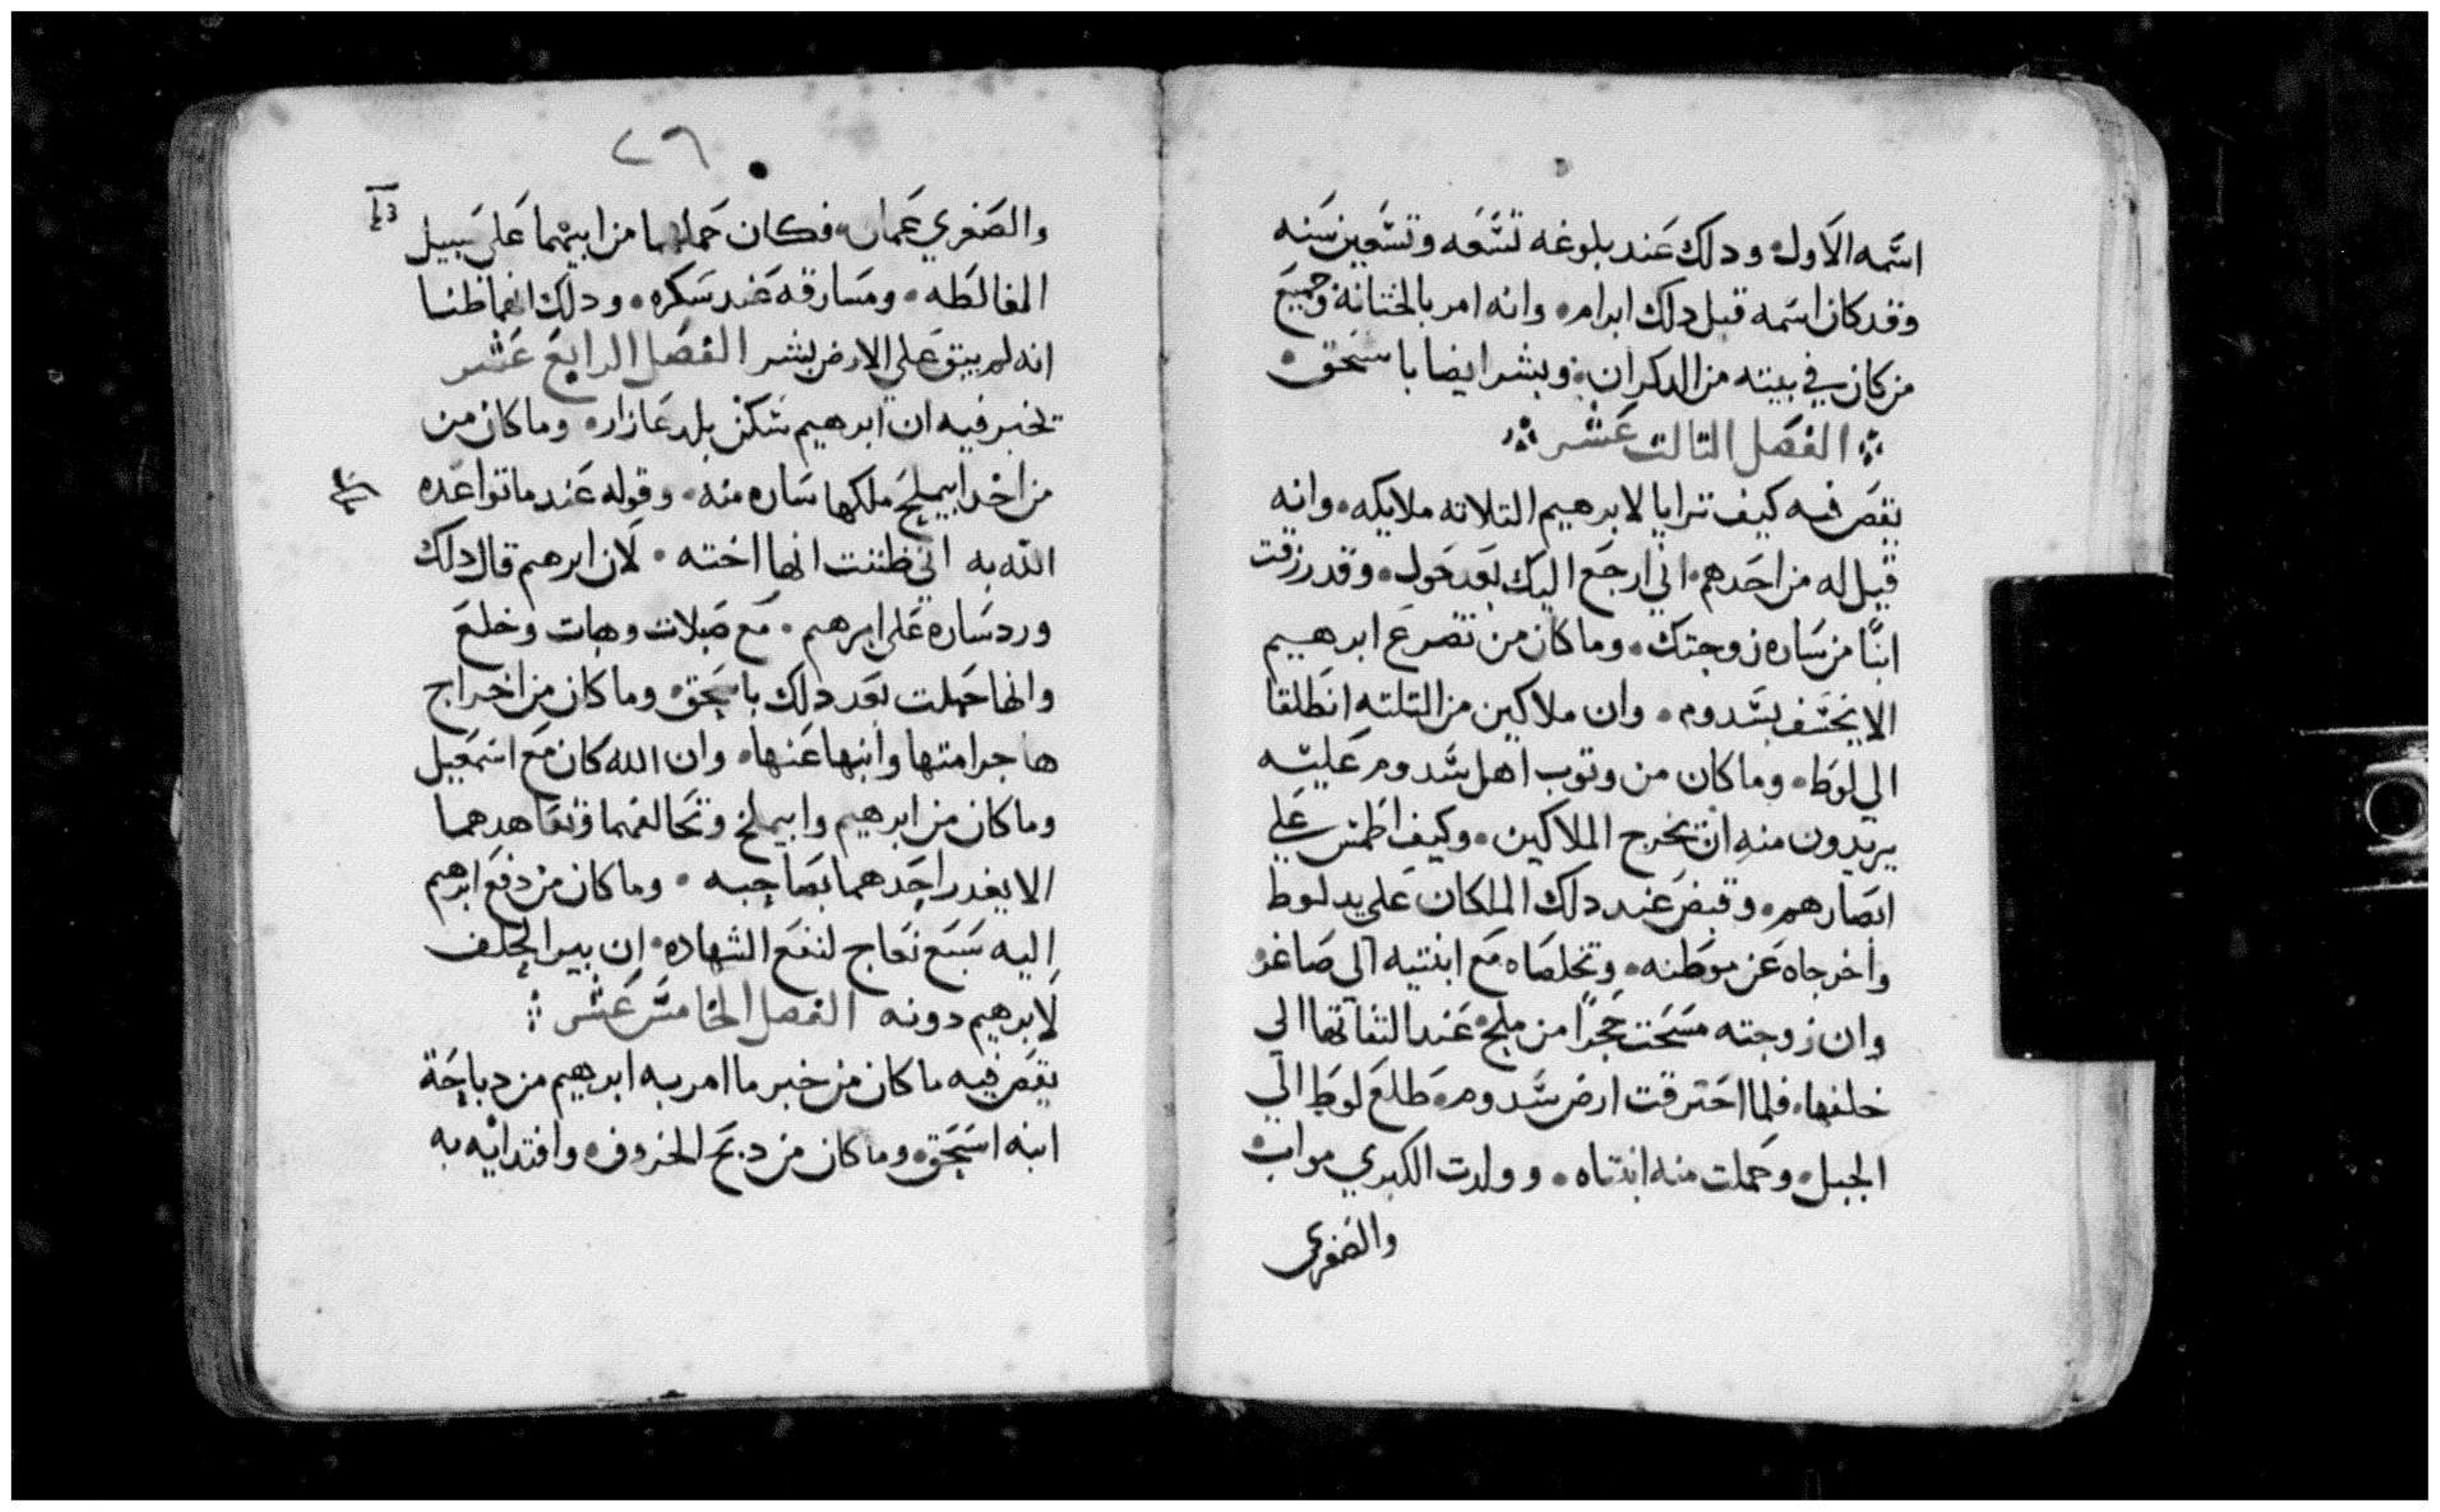 اسمه الاول ودلك عند بلوغه تسعه وتسعين سنه
وقد كان اسمه قبل دلك ابرام وانه امر بالختانة وجميع
من كان في بيته من الدكران وبشر ايضا باسحق
الفصل التالت عشر
يقص فيه كيف ترايا لابرهيم التلاته ملايكه وانه
قيل له من احدهم اني ارجع اليك بعد حول وقد رزقت
ابنًا من ساره زوجتك وما كان من تضرع ابرهييم
الا يخسف بسدوم وان ملاكين من التلته انطلقا
الي لوط وما كان من وتوب اهل سدوم عليه
يريدون منه ان يخرج الملاكين وكيف اطمس علي
ابصارهم وقبض عند دلك الملكان علي يد لوط
واخرجاه عن موطنه وتخلصاه مع ابنتيه الي صاغر
وان زوجته مسخت حجرًا من ملح عند التفاتها الي
خلفها فلما احترقت ارض سدوم طلع لوط الي
الجبل وحملت منه ابنتاه وولدت الكبري مواب
والصغري
٢٦
والصغري عمان فكان حملهما من ابيهما علي سبيل
المغالطه ومسارقه عند سكره ودلك انهما ظنا
انه لم يبق علي الارض بشر الفصل الرابع عشر
نخبر فيه ان ابرهيم سكن بلد عازار وما كان من
من اخد ابيملخ ملكها ساره منه وقوله عند ما تواعده
الله به اني ظننت انها اخته لان ابرهيم قال دلك
ورد ساره علي ابرهيم مع صلات وهبات وخلع
وانها حملت بعد دلك باسحق وما كان من اخراج
هاجر امتها وابنها عنها وان الله كان مع اسمعيل
وما كان من ابرهيم وابيملخ وتحالفهما وتعاهدهما
الا يغدر احدهما بصاحبه وما كان من دفع ابرهيم
اليه سبع نعاج لنفع الشهاده ان بير الحلف
لابرهيم دونه الفصل الخامس عشر
يقص فيه ما كان من خبر ما امر به ابرهيم من دباحة
ابنه اسحق وما كان من دبح الخروف وافتدايه به